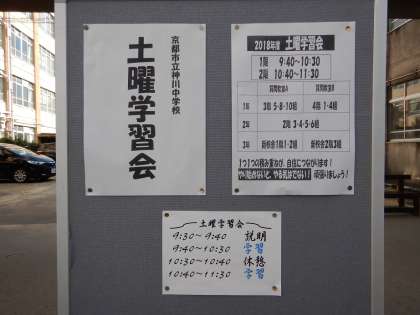 京都市立神川中学校
土曜学習会
2018年度 土曜学習会
1限 9:40~10:30
2限 10:40~11:30
質問教室A 質問教室B
1年 3階5-8-10組 4階1-4組
2年 2階3-4-5-6組
3年 新校舎1階1-2組 新校舎2階3組
1つ1つの積み重ねが、自信につながります!
やり始めないと、やる気はでない! 頑張りましょう!
土曜学習会
9:30~9:40 説明
9:40~10:30 学習
10:30~10:40 休憩
10:40~11:30 学習